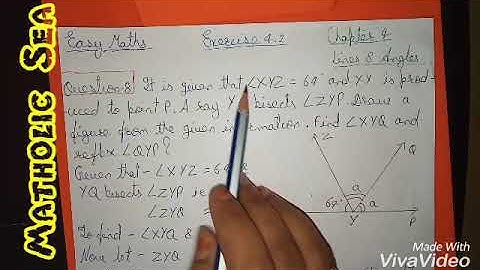 MATHOLIC SEA
Easy Maths
Exercise 4.2
Chapter 4
Lines & Angles
Question 8! It is given that ∠XYZ = 64° and XY is prod-
uced to point P. A ray Y bisects ∠ZYP. Draw a
figure from the given information. Find ∠XYQ and
reflex ∠QYP?
Given that - ∠XYZ = 64°
YQ bisects ∠ZYP
∠ZYQ =
To find - ∠XYQ &
Now let - ZYQ
Z
Q
a
a
X
Y
P
Made With
VivaVideo